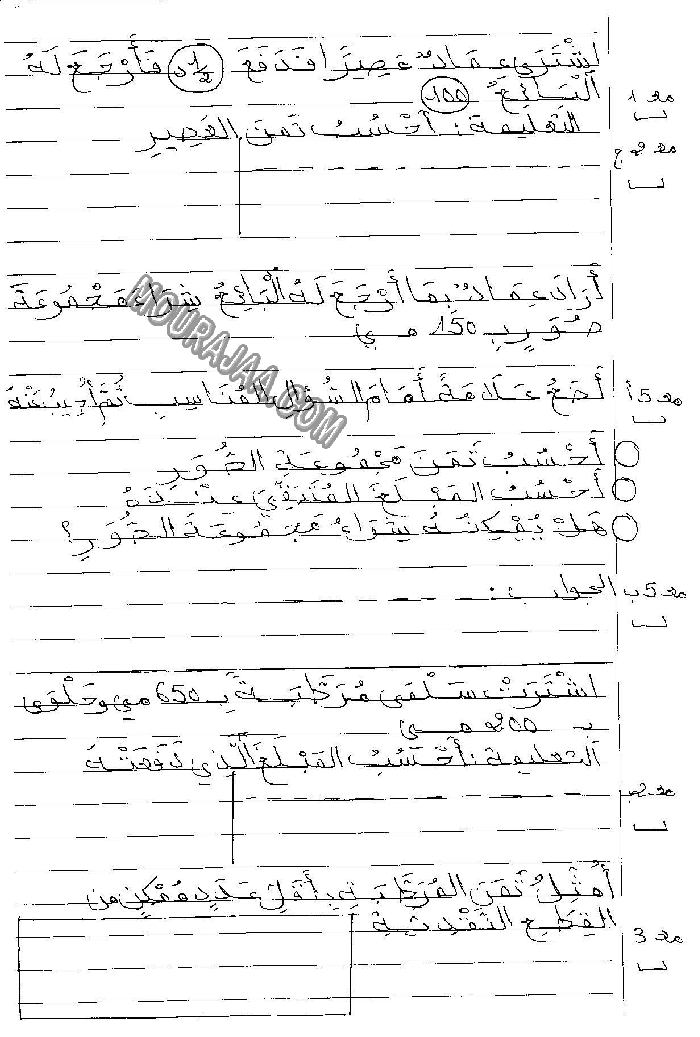 إِشْتَرَى عِمَادٌ عَصِيرًا فَدَفَعَ 1/2 د فَأَرْجَعَ لَهُ
الْبَائِعُ 100
مع 1
التعليمة : أَحْسُبُ ثَمَنَ العَصِيرِ
مع 2 ج
أَرَادَ عِمَادٌ بِمَا أَرْجَعَ لَهُ الْبَائِعُ شِرَاءَ مَجْمُوعَةَ
صُوَرٍ بِ 150 مي
أَضَعُ عَلَامَةً أَمَامَ السُّؤَالِ المُنَاسِبِ ثُمَّ أُجِيبُ عَنْهُ
مع 5 أ
أَحْسُبُ ثَمَنَ مَجْمُوعَةِ الصُّوَرِ
أَحْسُبُ المَبْلَغَ المُتَبَقِّيَ عِنْدَهُ
هَلْ يُمْكِنُهُ شِرَاءُ مَجْمُوعَةَ الصُّوَرِ؟
الجواب :
مع 5 ب
اشْتَرَتْ سَلْمَى مُرَطَّبَةً بِـ 650 مي وحَلْوَى
بـ 200 مي
التعليمة : أَحْسُبُ المَبْلَغَ الَّذِي دَفَعَتْهُ
مع 2
أُمَثِّلُ ثَمَنَ المُرَطَّبَةِ بِأَقَلِّ عَدَدٍ مُمْكِنٍ من
القِطَعِ النَّقْدِيَّةِ
مع 3
MOURAJAA.COM